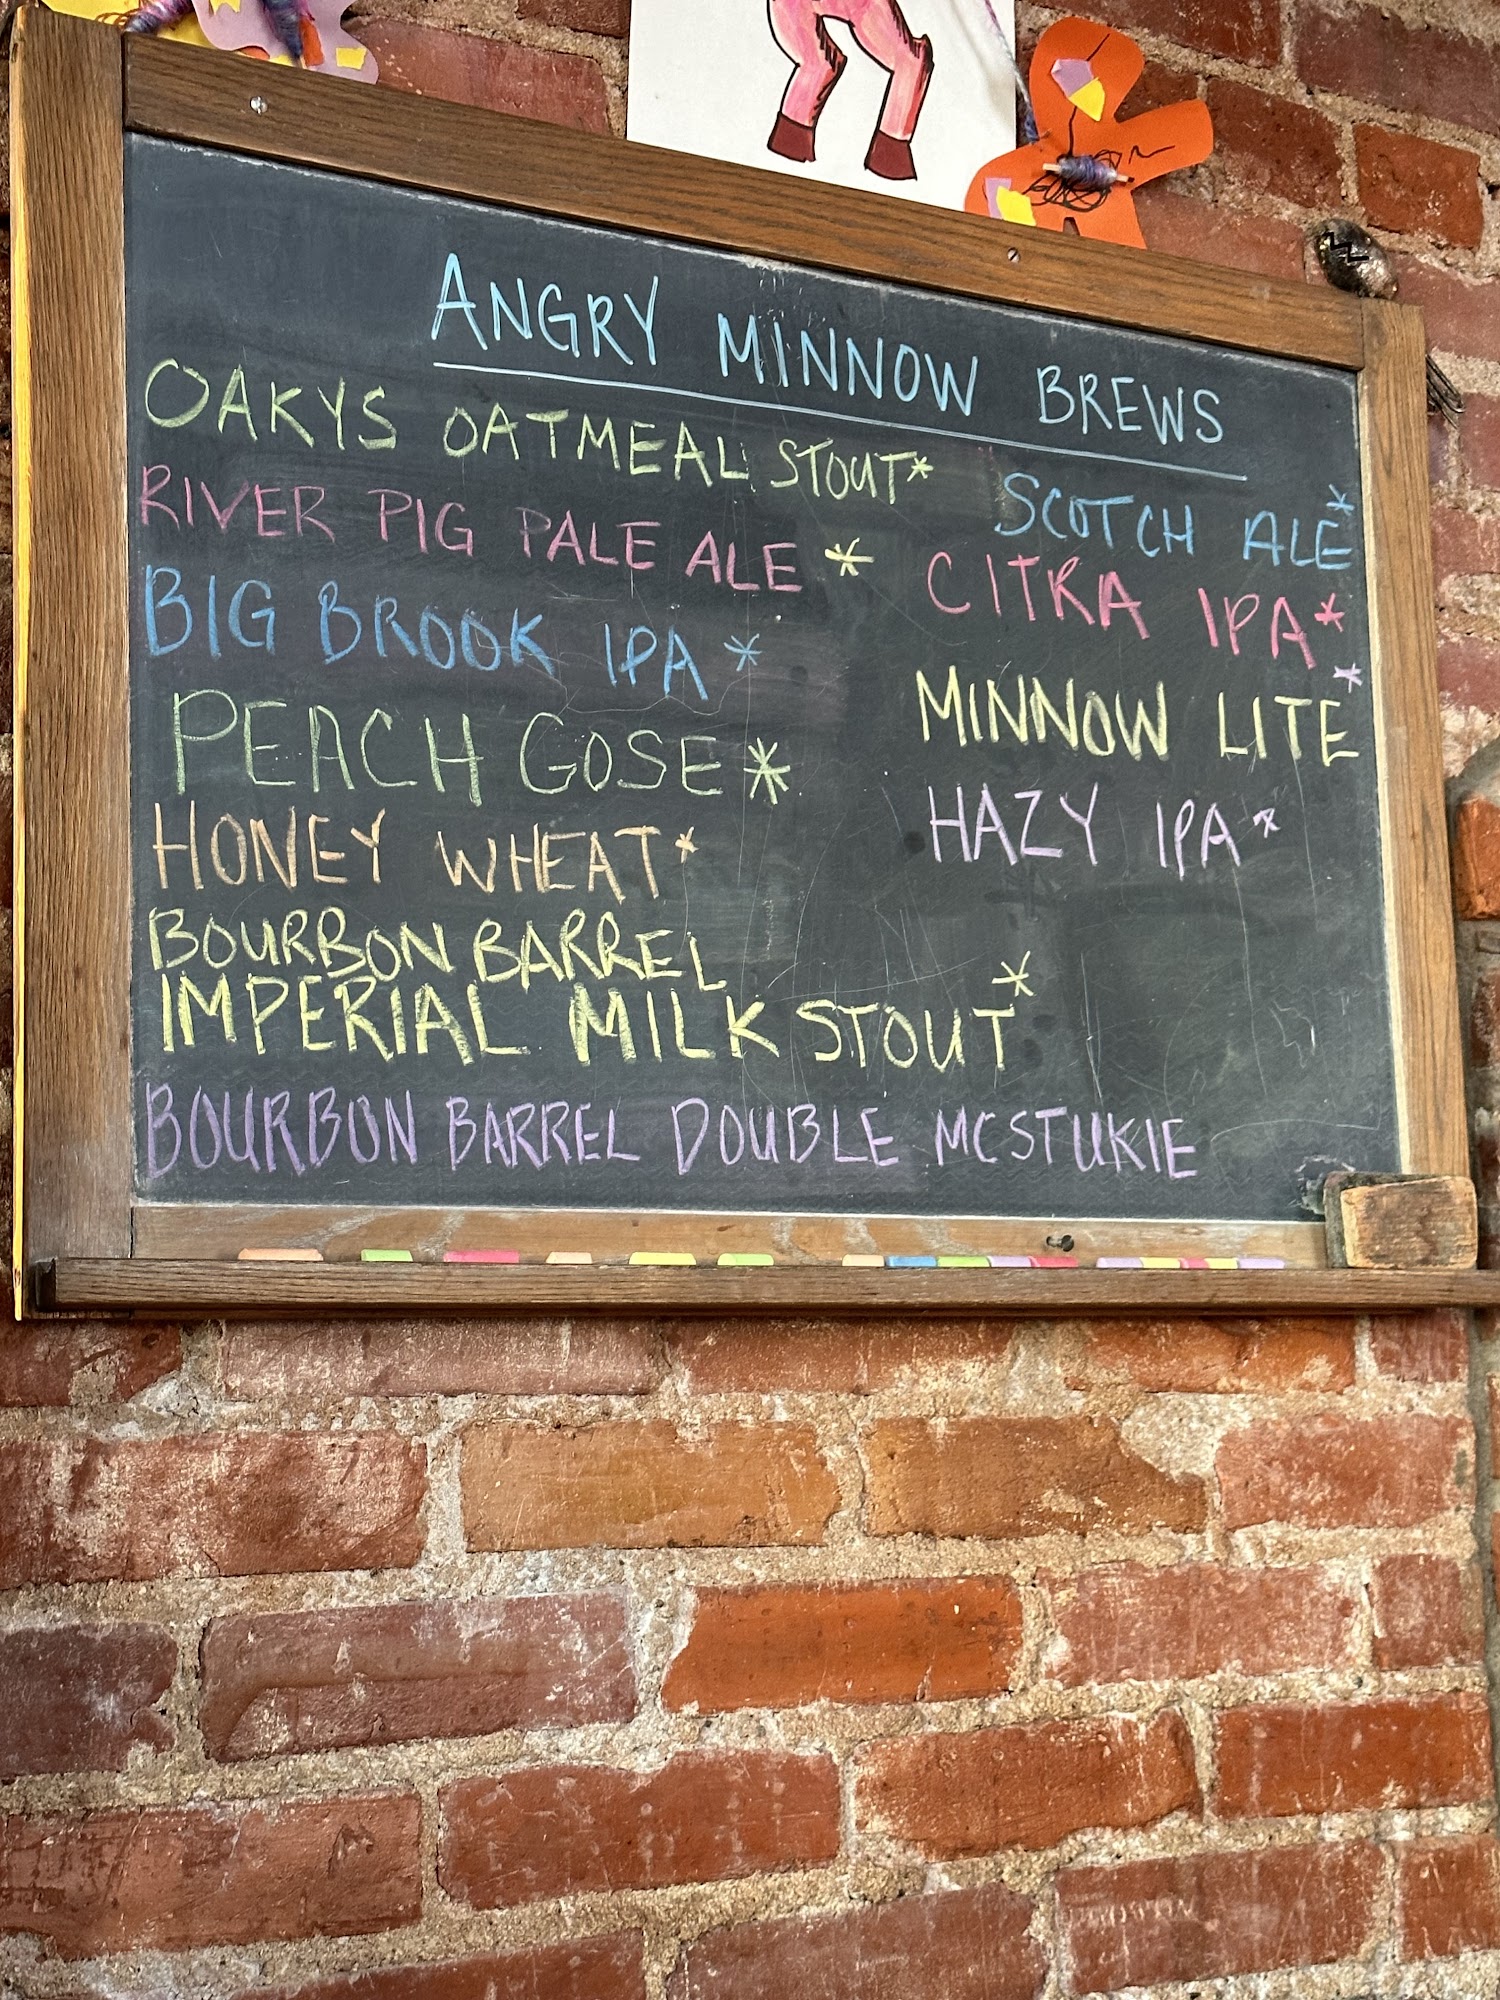 ANGRY MINNOW BREWS
OAKYS OATMEAL STOUT*
RIVER PIG PALE ALE *
BIG BROOK IPA *
PEACH GOSE *
HONEY WHEAT*
BOURBON BARREL
IMPERIAL MILK STOUT*
BOURBON BARREL DOUBLE MCSTUKIE
SCOTCH ALE*
CITRA IPA*
MINNOW LITE*
HAZY IPA*